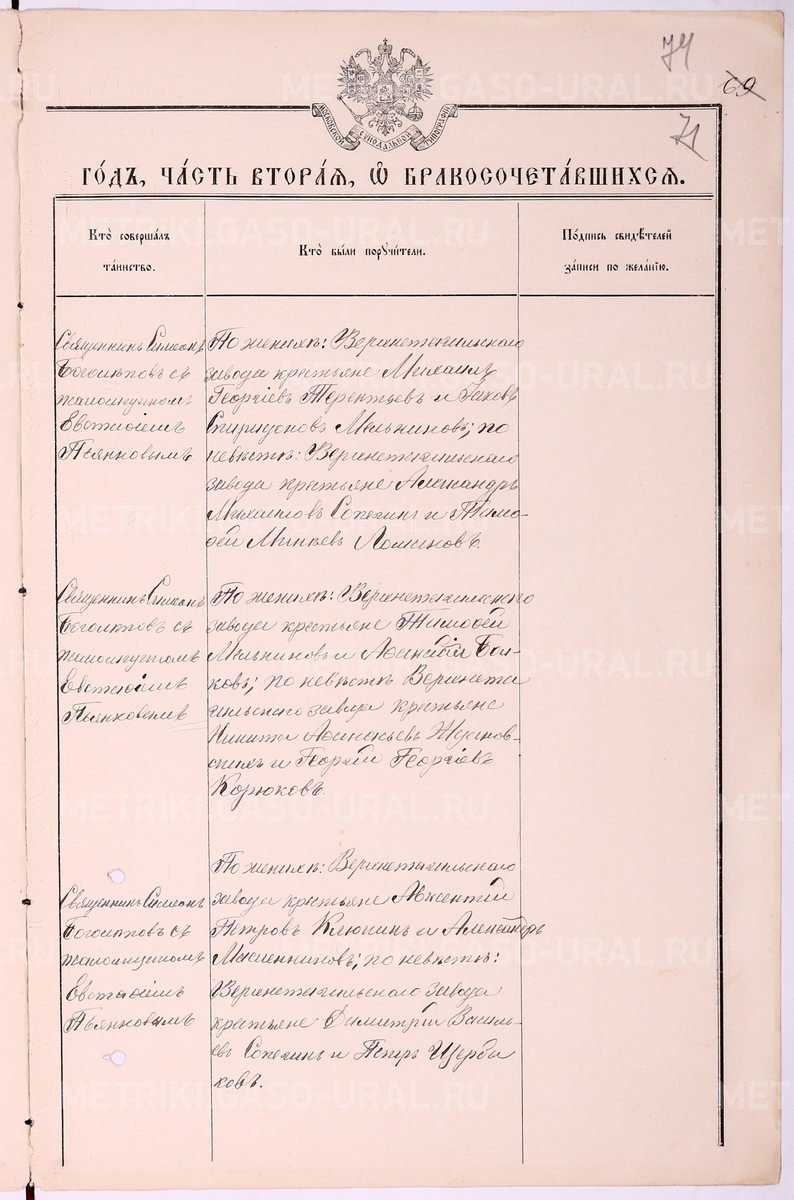 74
69
71
МОСКОВСКОЙ СѴНОДАЛЬНОЙ ТИПОГРАФІИ
ГО́ДЪ, ЧА́СТЬ ВТОРА́Я, Ѡ҆ БРАКОСОЧЕТА́ВШИХСЯ.
Кто̀ соверша́лъ
та́инство.
Кто̀ бы́ли порꙋчи́тели.
По́дпись свидѣ́телей
за́писи по жела́нїю.
Священникъ Симеонъ
Боголѣповъ съ
псаломщикомъ
Евстаѳіемъ
Пьянковымъ
По женихѣ: Верхнетагильскаго
завода крестьяне Михаилъ
Георгіевъ Терентьевъ и Іаковъ
Спиридоновъ Мельниковъ; по
невѣстѣ: Верхнетагильскаго
завода крестьяне Александръ
Михаиловъ Сопегинъ и Тимо-
ѳей Минѣевъ
Священникъ Симеонъ
Боголѣповъ съ
псаломщикомъ
Евстаѳіемъ
Пьянковымъ
По женихѣ: Верхнетагильскаго
завода крестьяне Тимоѳей
Мельниковъ и Аѳанасій
по невѣстѣ Верхнета
гильскаго завода крестьяне
Никита Аѳанасьевъ
и Георгій Георгіевъ
Корюковъ.
Священникъ Симеонъ
Боголѣповъ съ
псаломщикомъ
Евстаѳіемъ
Пьянковымъ
По женихѣ: Верхнетагильскаго
завода крестьяне Авксентій
Петровъ Клюкинъ и Александръ
Масленниковъ; по невѣстѣ:
Верхнетагильскаго завода
крестьяне Димитрій Василь-
евъ Сопегинъ и Петръ Щерба
ковъ.
METRIKI.GASO-URAL.RU